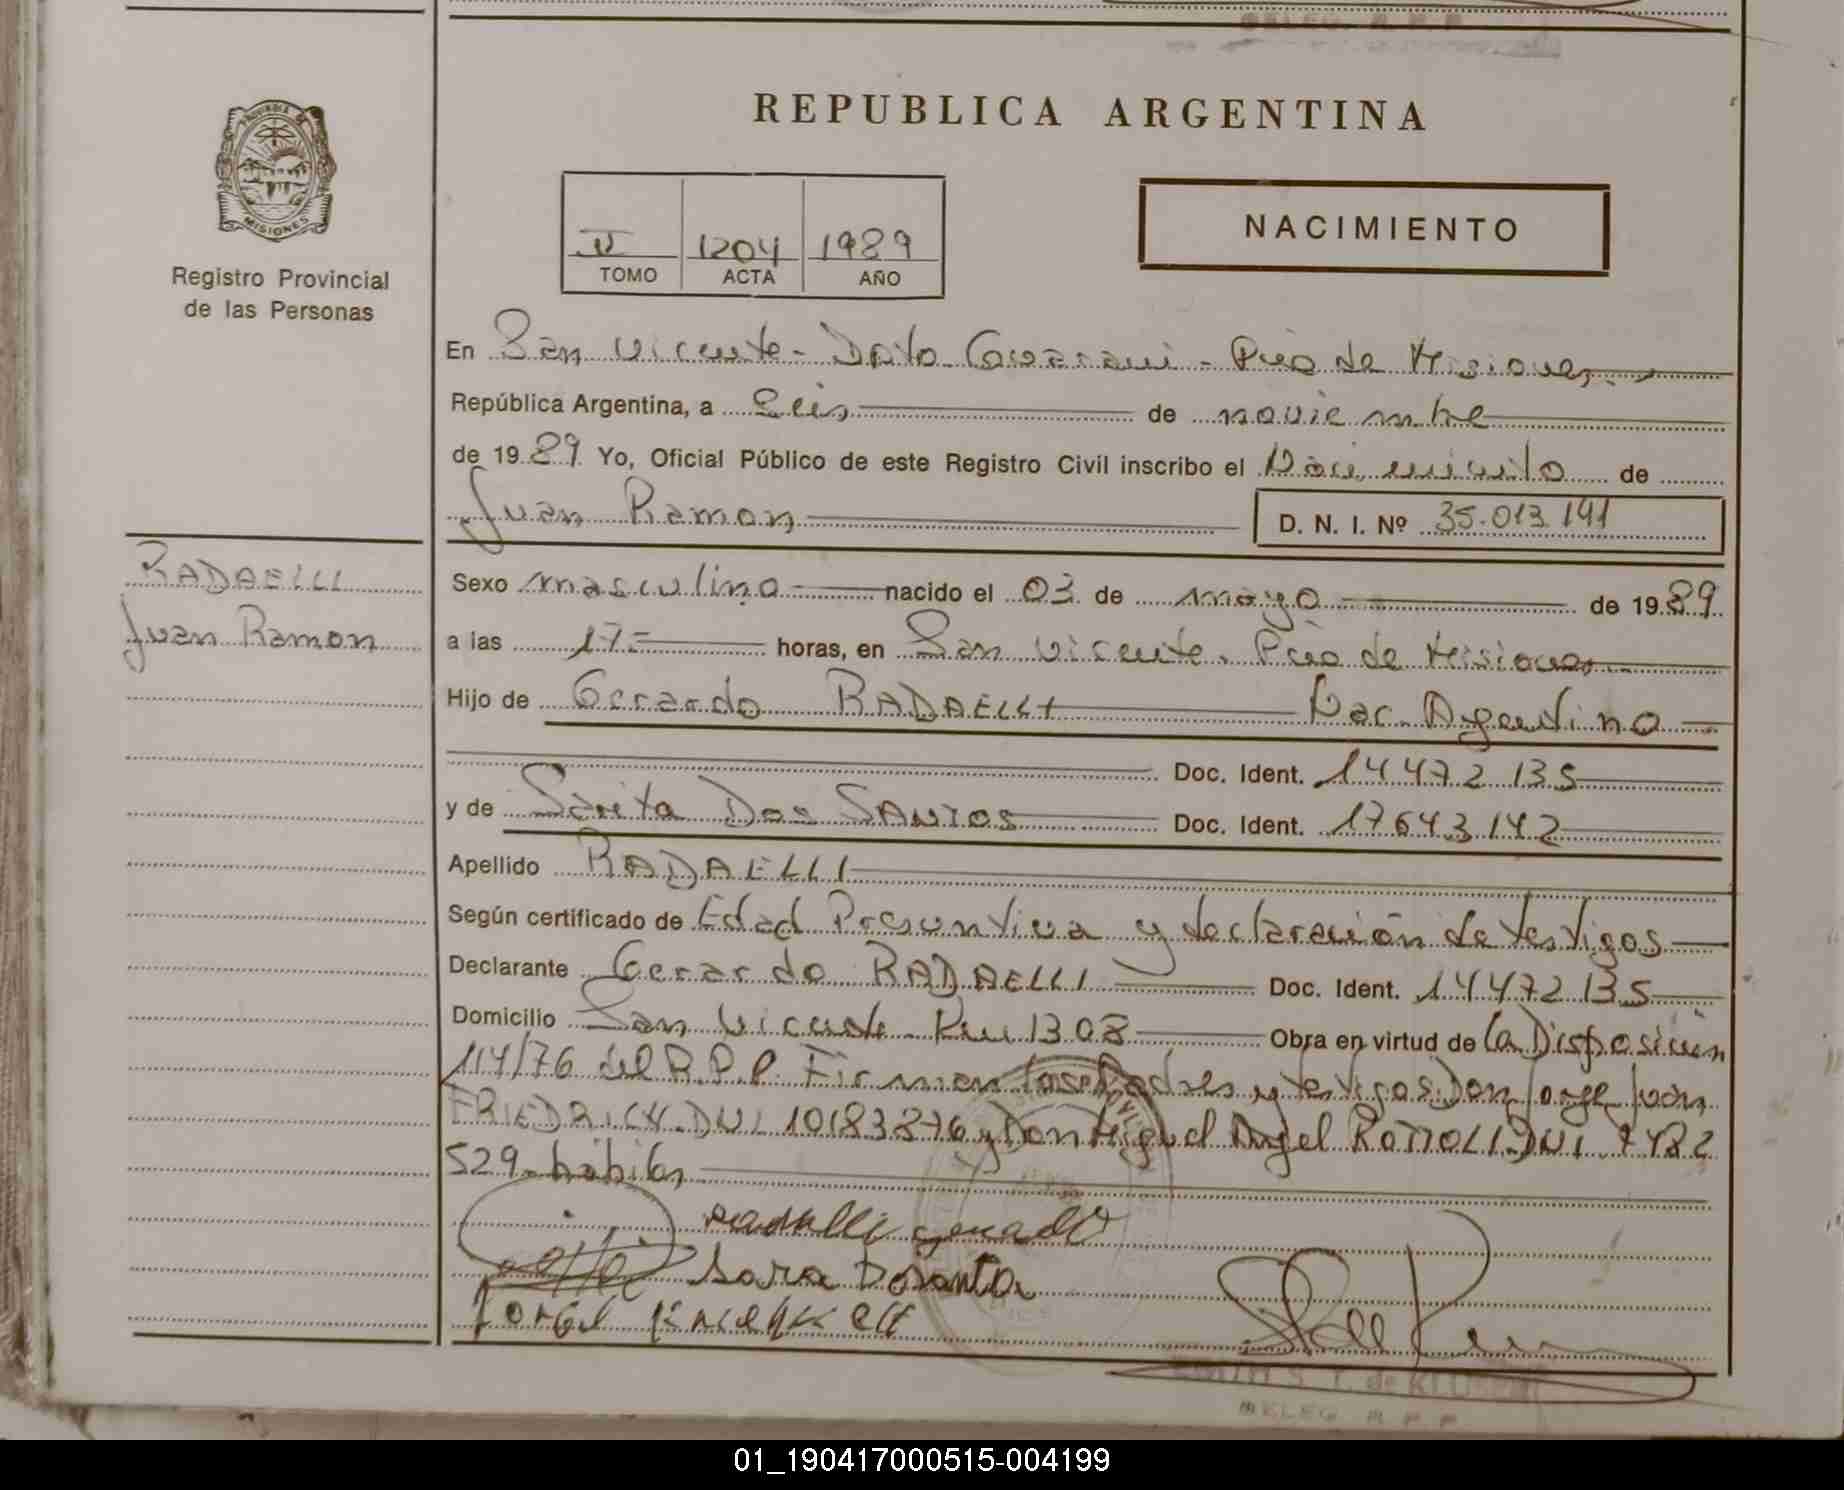 REPUBLICA ARGENTINA
PROVINCIA DE
MISIONES
Registro Provincial
de las Personas
II 1204 1989
TOMO ACTA AÑO
NACIMIENTO
En San Vicente - Dpto Guarani - Pcia de Misiones
República Argentina, a Seis de noviembre
de 1989 Yo, Oficial Público de este Registro Civil inscribo el Nacimiento de
Juan Ramon
D. N. I. Nº 35.013.141
RADAELLI
Juan Ramon
Sexo masculino nacido el 03 de mayo de 1989
a las 17 horas, en San Vicente. Pcia de Misiones
Hijo de Gerardo RADAELLI Nac. Argentino
Doc. Ident. 14472135
y de Sarita Dos SANTOS Doc. Ident. 17643142
Apellido RADAELLI
Según certificado de Edad Presuntiva y declaración de testigos
Declarante Gerardo RADAELLI Doc. Ident. 14472135
Domicilio San Vicente Km 1308 Obra en virtud de la Disposición
114/76 del R.P.P. Firman los Padres y testigos Don Jorge Juan
FRIEDRICH DNI 10183876 y Don Miguel Angel ROTTOLI DNI 7482
529 habiles
radaelli gerardo
Sara Dosanto
DELEG. R P P
01_190417000515-004199